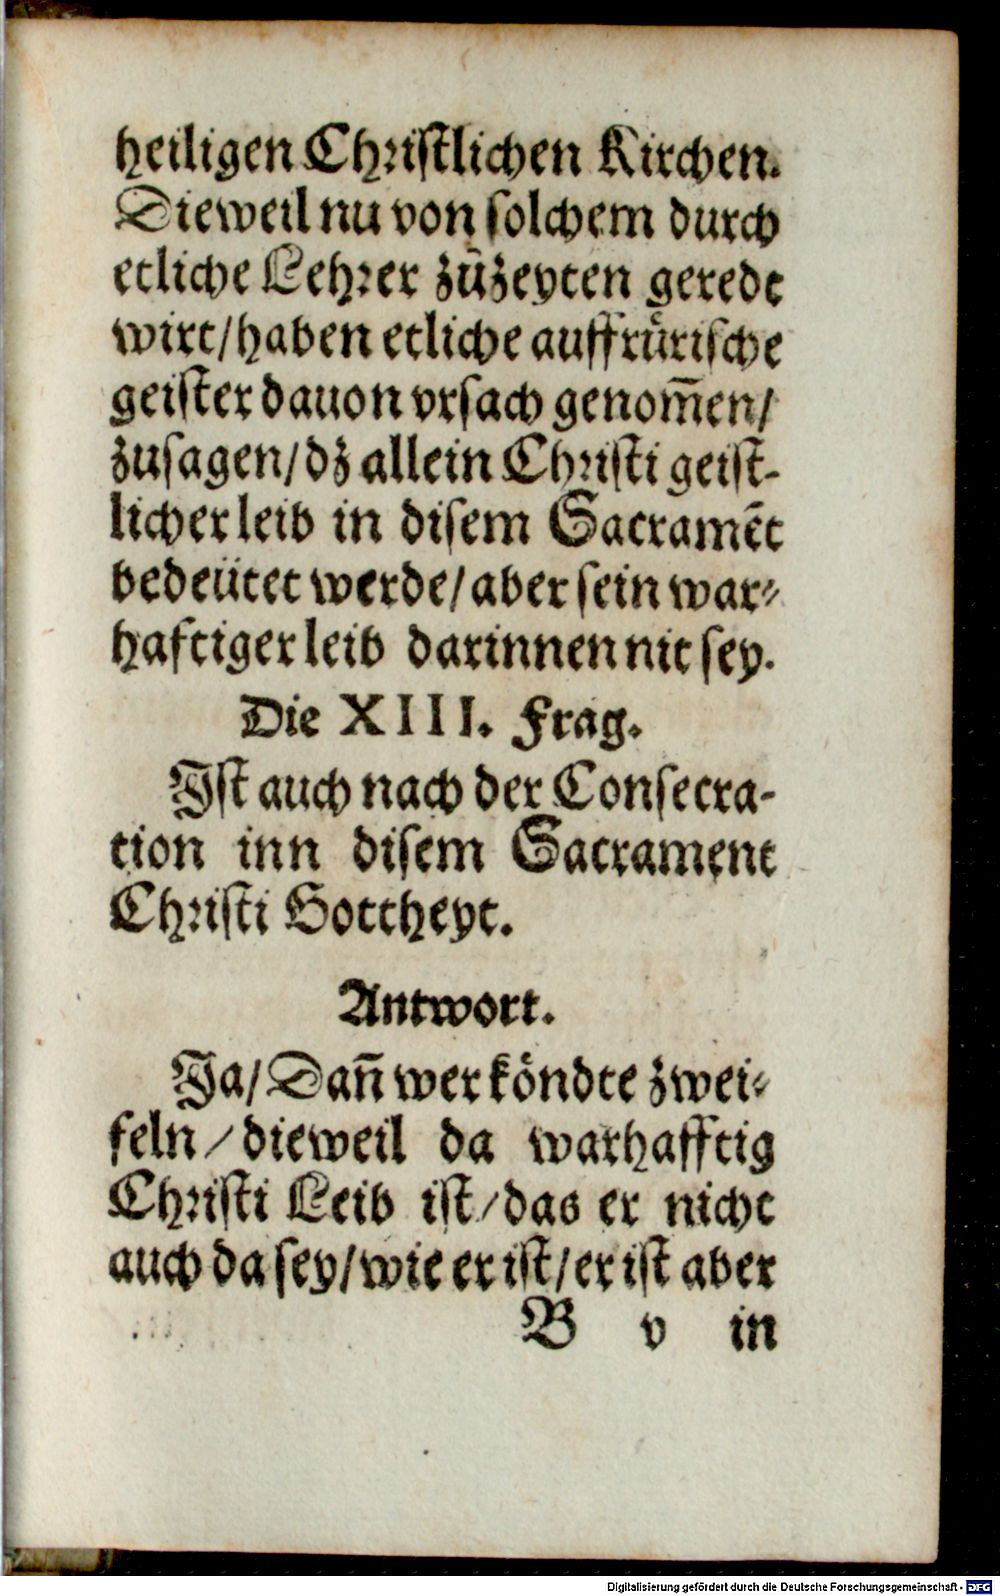 heiligen Christlichen Kirchen.
Dieweil nu von solchem durch
etliche Lehrer zůzeyten geredt
wirt/haben etliche auffrůrische
geister dauon vrsach genom̄en/
zusagen/dz allein Christi geist-
licher leib in disem Sacramēt
bedeütet werde/aber sein war-
haftiger leib darinnen nit sey.
Die XIII. Frag.
Ist auch nach der Consecra-
tion inn disem Sacrament
Christi Gottheyt.
Antwort.
Ja/Dañ wer köndte zwei-
feln/dieweil da warhafftig
Christi Leib ist/das er nicht
auch da sey/wie er ist/er ist aber
B v in
Digitalisierung gefördert durch die Deutsche Forschungsgemeinschaft - DFG